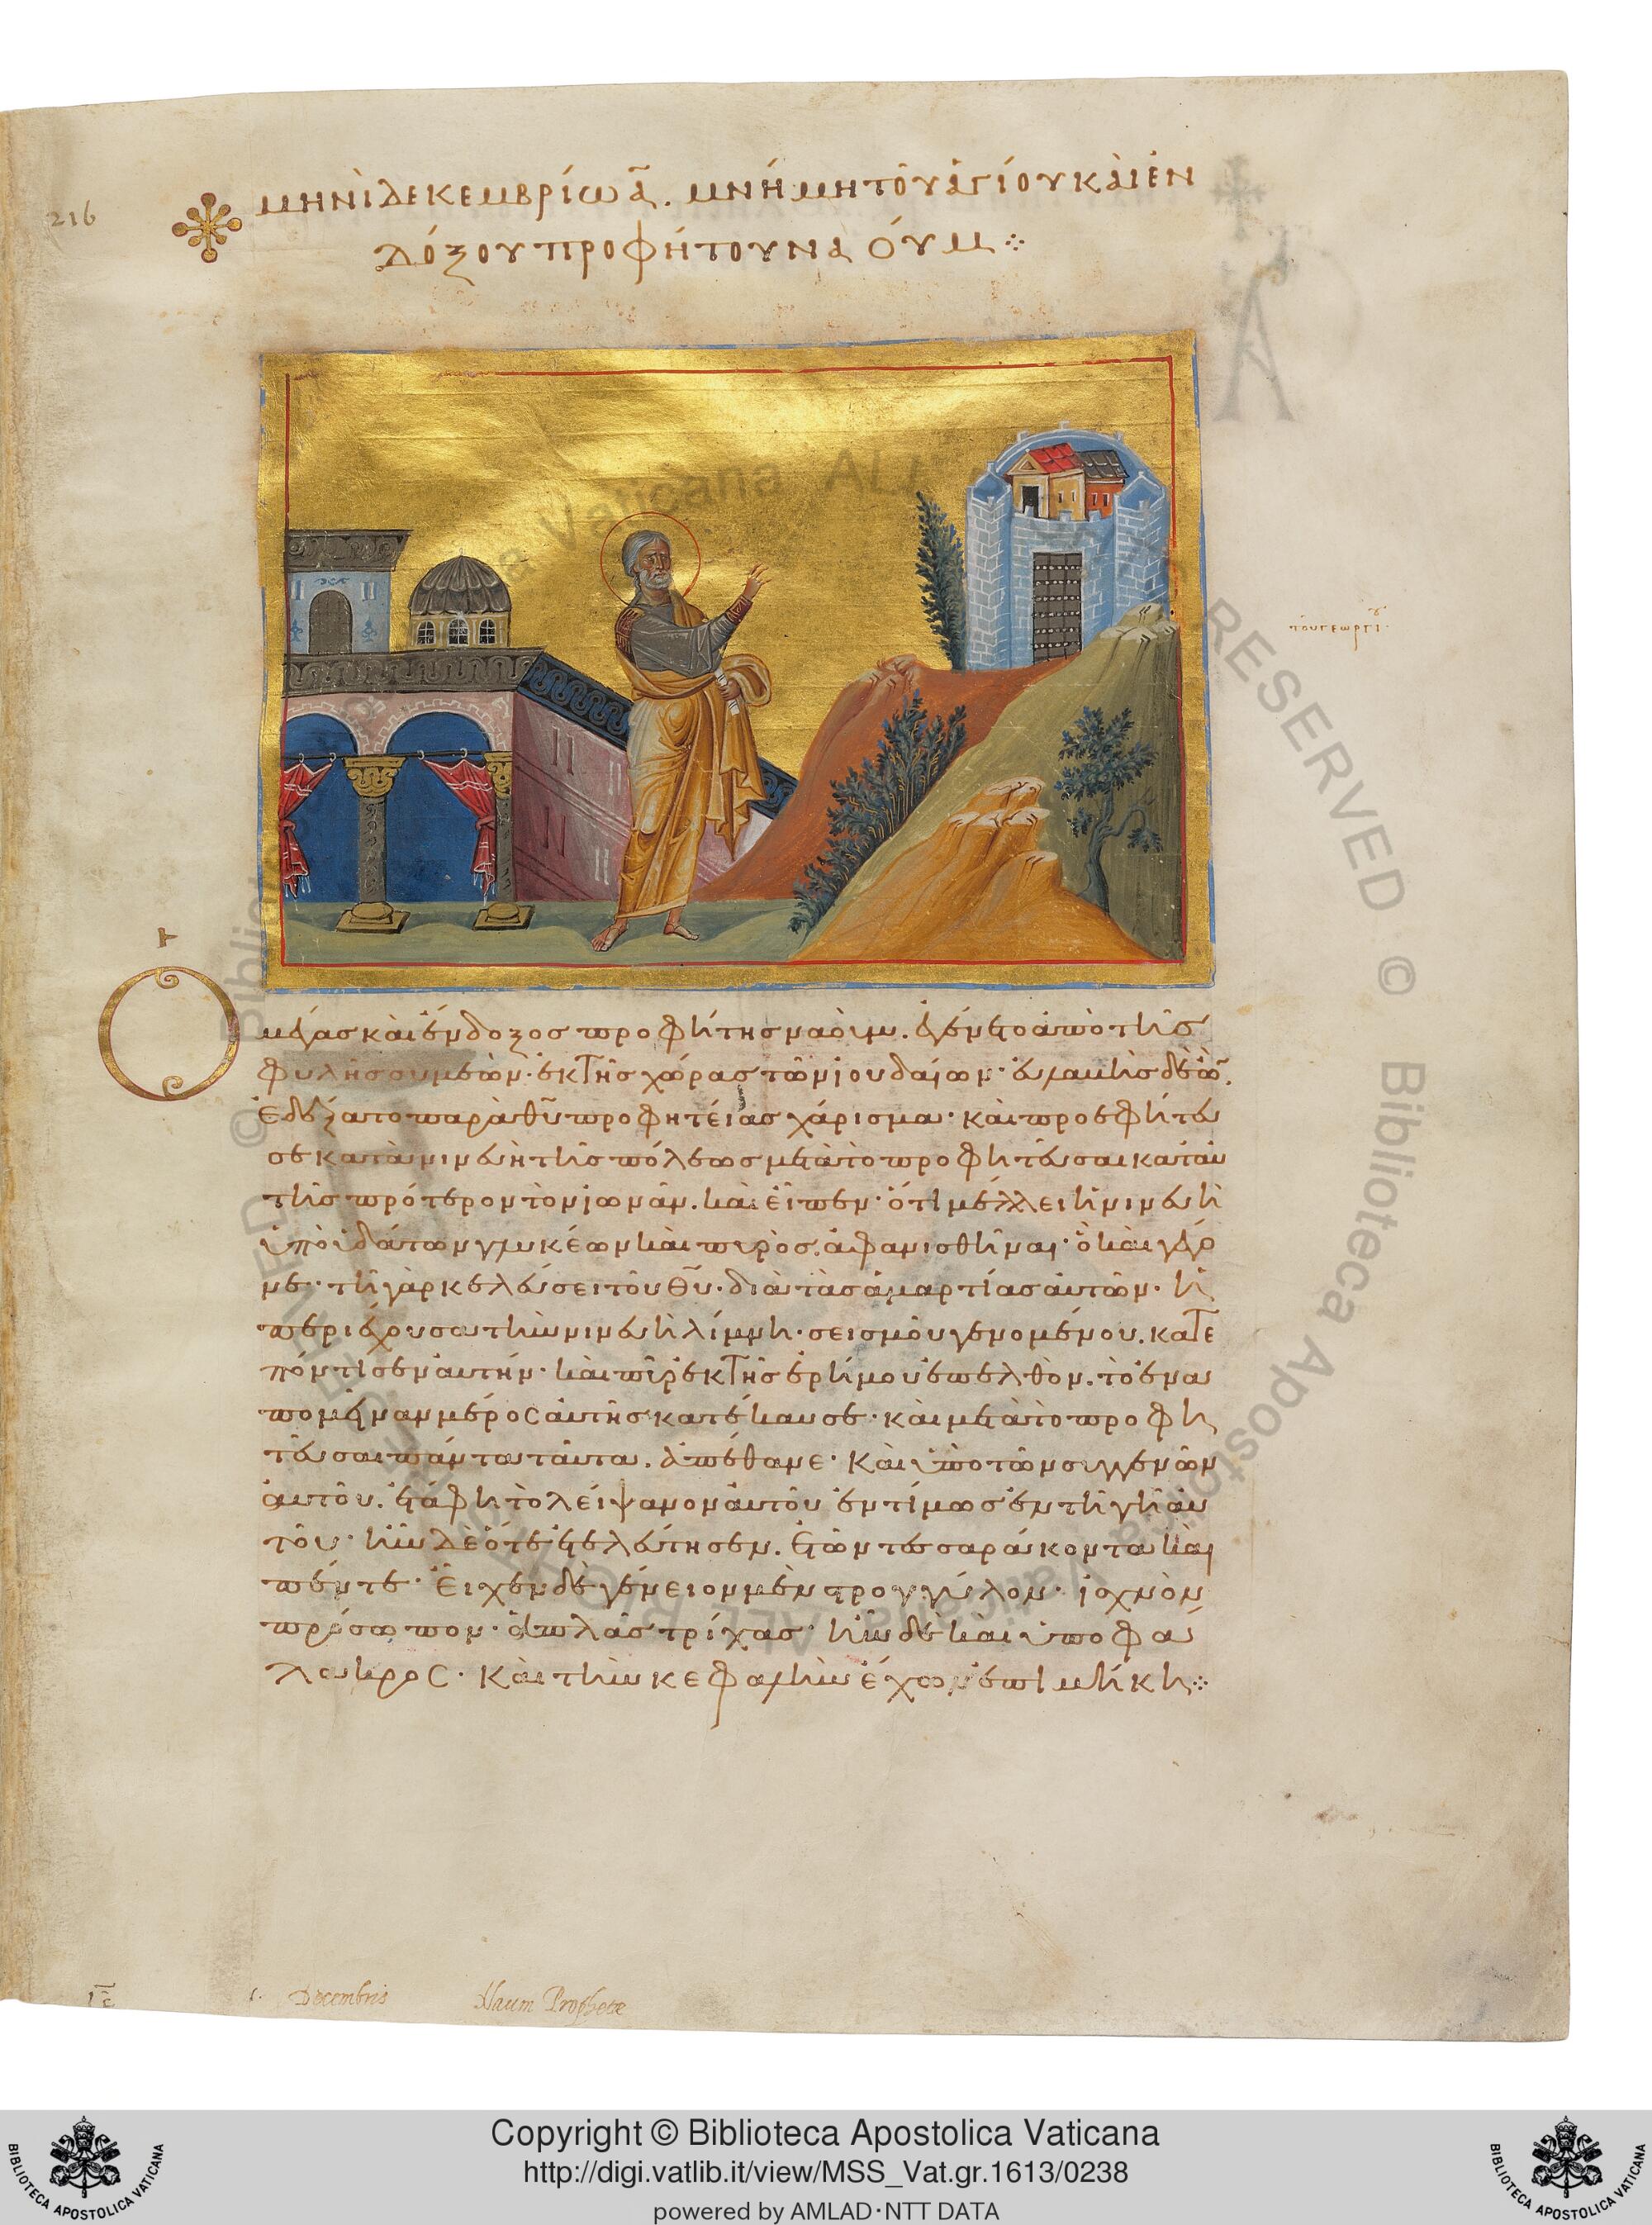 216
μηνὶ δεκεμβρίω α̅. μνήμη τοῦ ἁγίου καὶ ἐν
δόξου προφήτου ναούμ ⁘
τοῦ γεωργί
Ὁ μέγας καὶ ἔνδοξος προφήτης ναούμ. ἐγένετο ἀπὸ τῆς
φυλῆς συμεών· ἐκ τῆς χώρας τῶν ἰουδαίων·
ἐδέξατο παρὰ θυ̅ προφητείας χάρισμα· καὶ προεφήτευ
σε κατὰ νινευὴ τῆς πόλεως μετὰ τὸ προφητεῦσαι κατ' αὐ
τῆς πρότερον τὸν ἰωνᾶν. καὶ εἶπεν· ὅτι μέλλει ἡ νινευὴ
ὑπὸ ὑδάτων γλυκέων καὶ πυρὸς ἀφανισθῆναι· ὃ καὶ γέγο
νε· τῇ γὰρ κελεύσει τοῦ θυ̅· διὰ τὰς ἁμαρτίας αὐτῶν· ἡ
περιέχουσα τὴν νινευὴ λίμνη· σεισμοῦ γενομένου. κατε
πόντισεν αὐτήν· καὶ πῦρ ἐκ τῆς ἐρήμου ἐπελθὸν. τὸ ἐνα
πομεῖναν μέρος αὐτῆς κατέκαυσε· καὶ μετὰ τὸ προφη
τεῦσαι πάντα ταῦτα. ἀπέθανε· καὶ ὑπὸ τῶν συγγενῶν
αὐτοῦ. ἐτάφη τὸ λείψανον αὐτοῦ ἐντίμως ἐν τῇ γῇ αὐ
τοῦ· ἦν δὲ ὅτε ἐτελεύτησεν. ἐτῶν τεσσαράκοντα καὶ
πέντε· εἶχεν δὲ γένειον μὲν στρογγύλον· ἰσχνὸν
πρόσωπον· ἁπλᾶς τρίχας· ἦν δὲ καὶ ὑποφά
λακρος· καὶ τὴν κεφαλὴν ἔχων ἐπιμήκη ⁘
1. Decembris Naum Prophetæ
Copyright © Biblioteca Apostolica Vaticana
http://digi.vatlib.it/view/MSS_Vat.gr.1613/0238
powered by AMLAD·NTT DATA
BIBLIOTECA APOSTOLICA VATICANA
BIBLIOTECA APOSTOLICA VATICANA
© Biblioteca Apostolica Vaticana ALL RIGHTS RESERVED